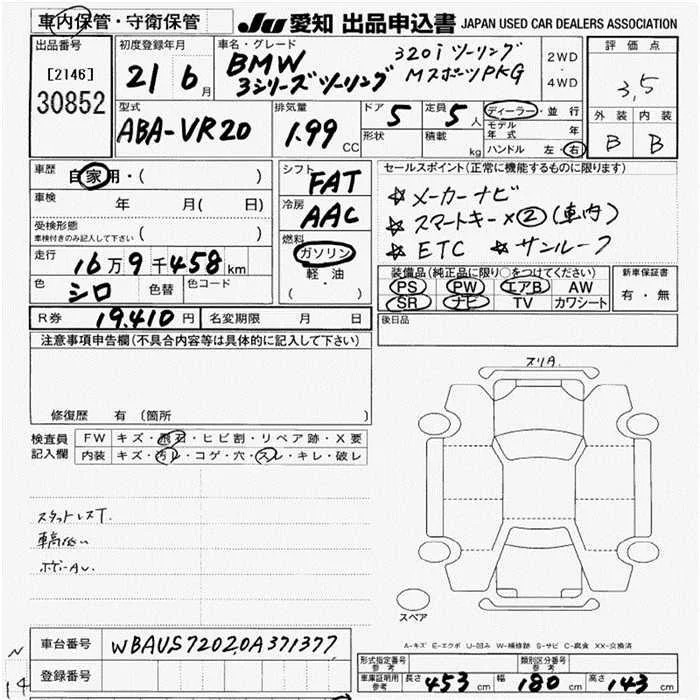 車内保管・守衛保管 JU 愛知 出品申込書 JAPAN USED CAR DEALERS ASSOCIATION
出品番号
[2146]
30852
初度登録年月
21 6月
車名・グレード
BMW 320i ツーリング
3シリーズツーリング MスポーツPKG
2WD
・
4WD
評価点
3,5
外装 内装
B B
型式
ABA-VR20
排気量
1.99 CC
ドア 5
形状
定員 5人
積載 kg
ディーラー・並行
モデル年式 年
ハンドル 左・右
車歴
自家用・( )
車検
年 月( 日)
受検形態
車検付きのみ記入して下さい ( )
走行
16万9千458km
色
シロ
色替
色コード
シフト
FAT
冷房
AAC
燃料
ガソリン
軽・油
( ・ )
セールスポイント(正常に機能するものに限ります)
☆ メーカーナビ
☆ スマートキー×②(車内)
☆ ETC ☆ サンルーフ
装備品(純正品に限り○をつけてください)
PS PW エアB AW
SR ナビ TV カワシート
新車保証書
有・無
後日品
R券 19.410円 名変期限 月 日
注意事項申告欄(不具合内容等は具体的に記入して下さい)
修復歴 有(箇所
検査員
記入欄
FW キズ・飛石・ヒビ割・リペア跡・X要
内装 キズ・汚レ・コゲ・穴・スレ・キレ・破レ
スタットレスT.
車高低い
ボデーAU.
スリA.
スペア
A-キズ E-エクボ U-凹み W-補修跡 S-サビ C-腐食 XX-交換済
車台番号 WBAUS72020A371377
登録番号
N
14
形式指定番号
参考
類別区分番号
参考
車庫証明用
参考
長さ 453cm 幅 180cm 高さ 143cm